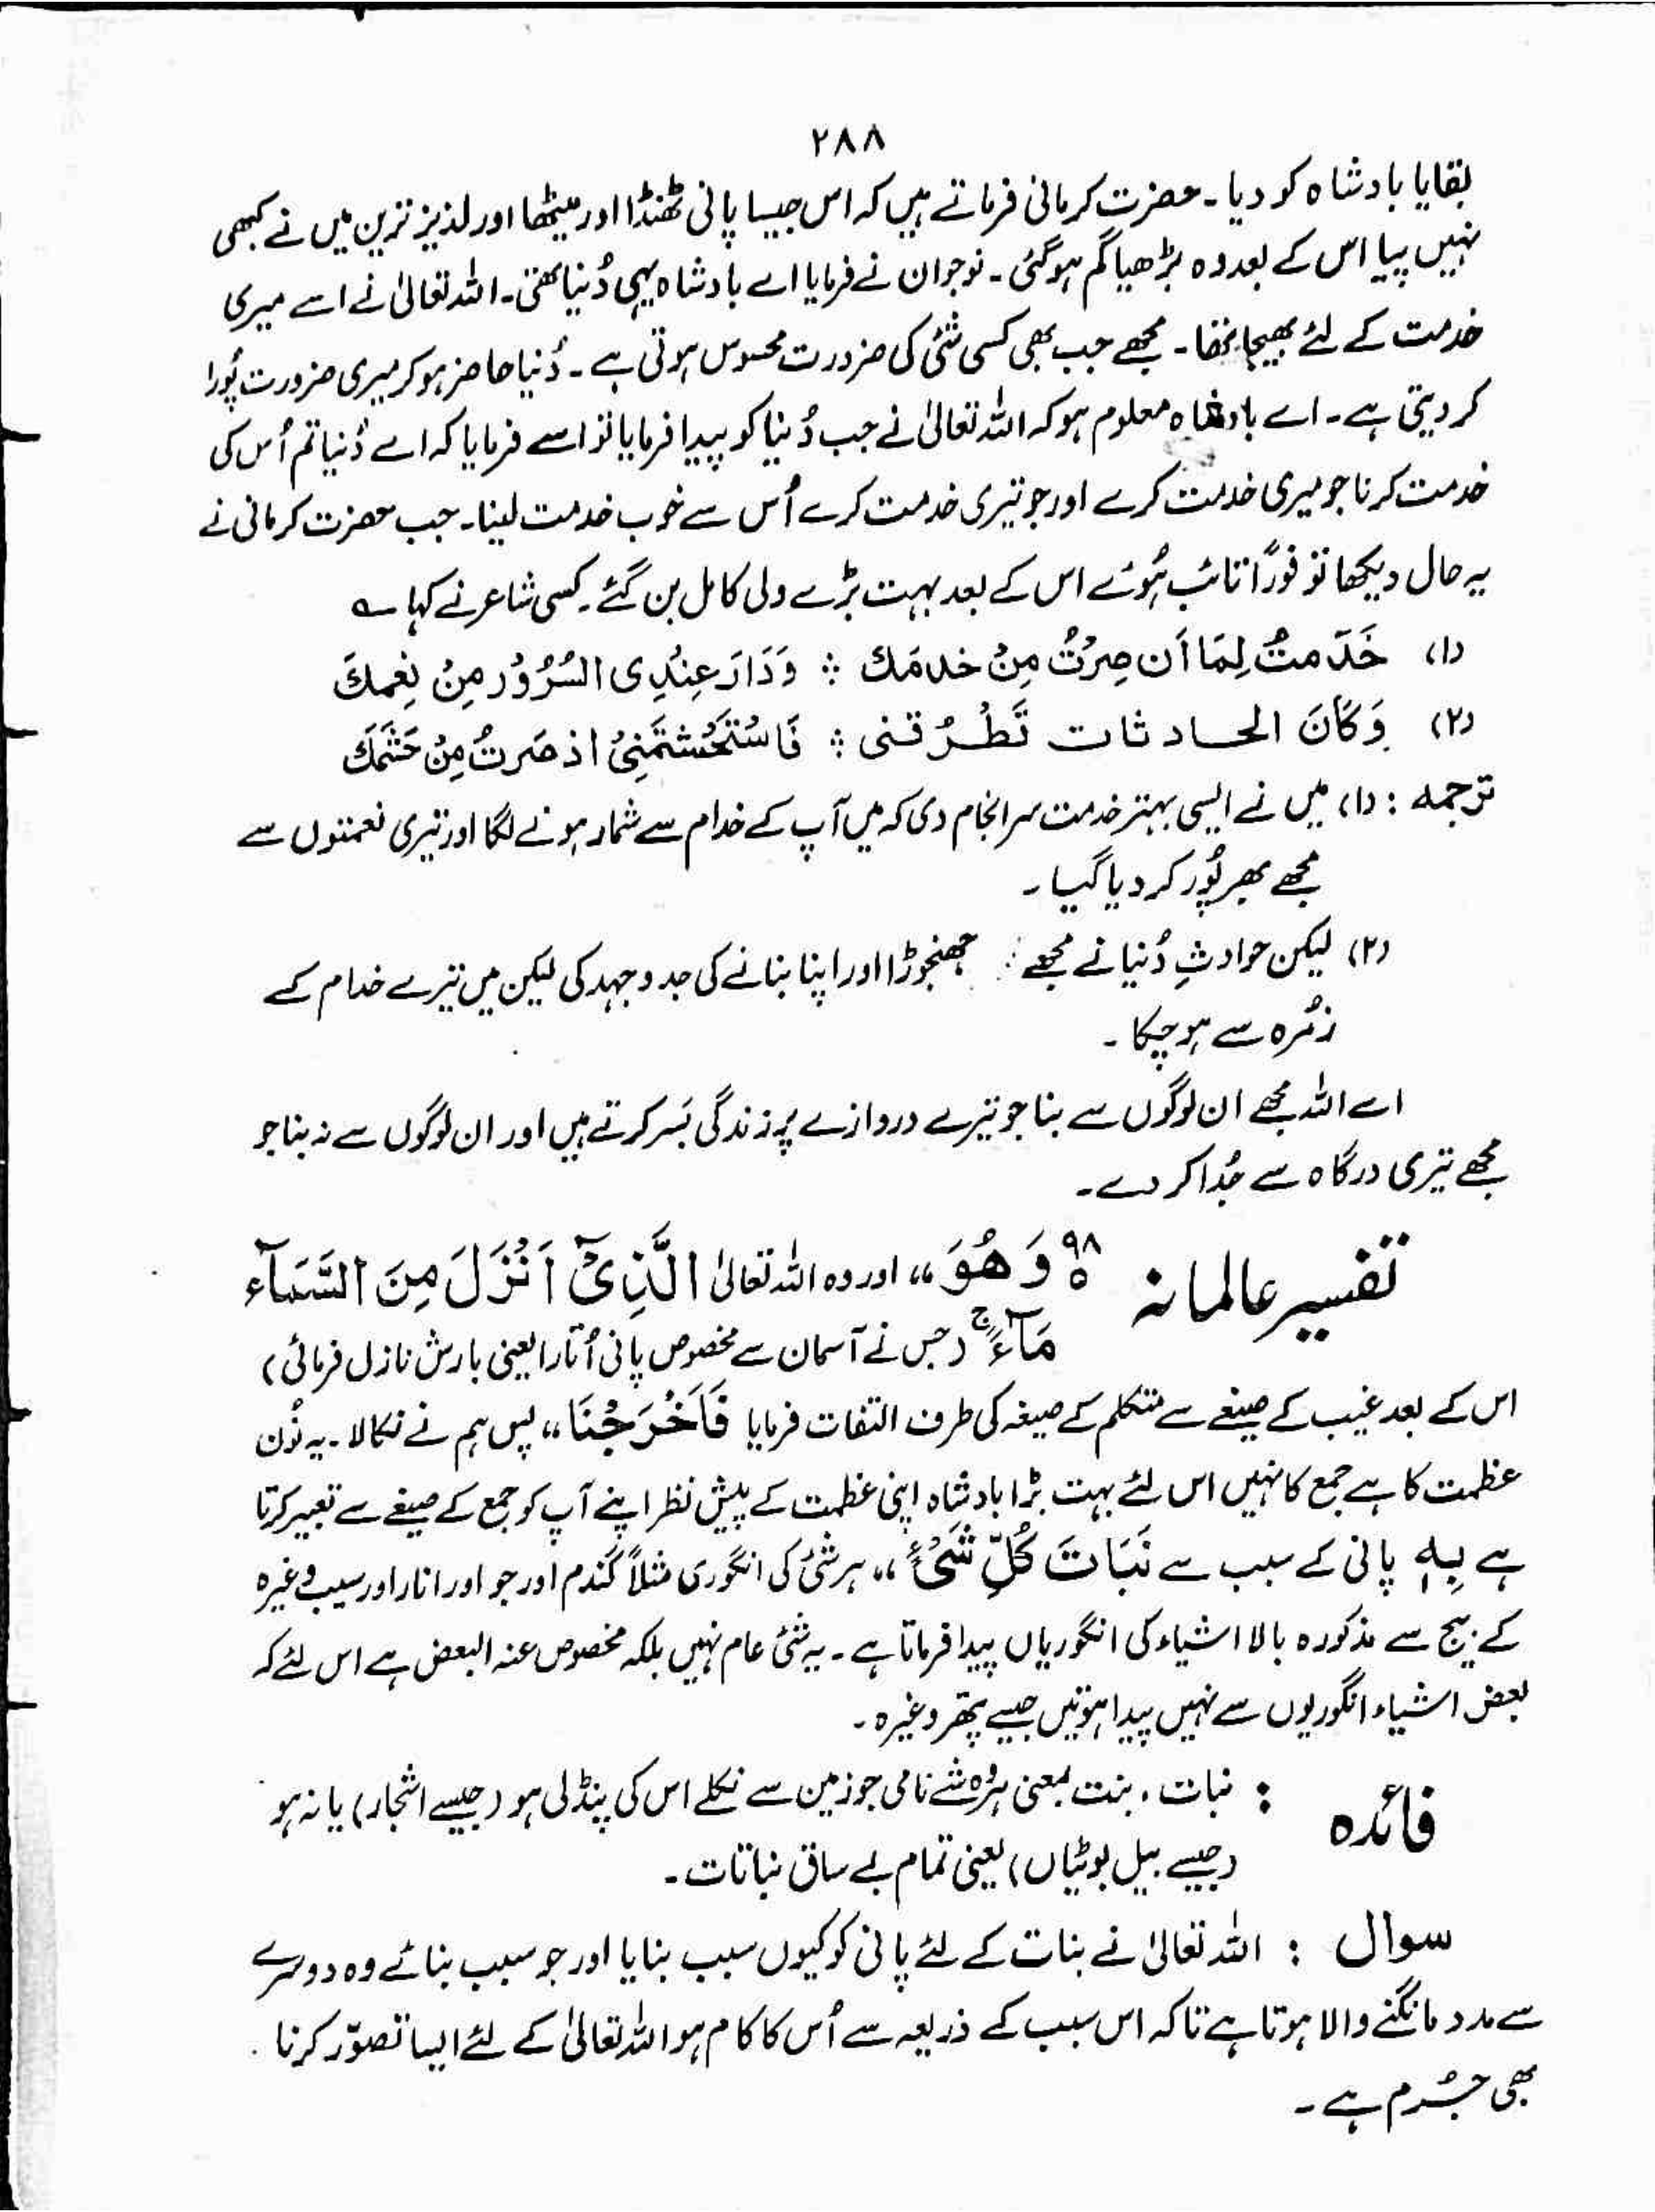 ۲۸۸
بقایا بادشاہ کو دیا۔ حضرت کرمانی فرماتے ہیں کہ اس جیسا پانی ٹھنڈا اور میٹھا اور لذیز ترین میں نے کبھی
نہیں پیا اس کے بعد وہ بڑھیا گم ہوگئی۔ نوجوان نے فرمایا اے بادشاہ یہی دُنیا تھی۔ اللہ تعالیٰ نے اسے میری
خدمت کے لئے بھیجا تھا۔ مجھے جب بھی کسی شئی کی ضرورت محسوس ہوتی ہے۔ دُنیا حاضر ہو کر میری ضرورت پُورا
کر دیتی ہے۔ اے بادشاہ معلوم ہو کہ اللہ تعالیٰ نے جب دُنیا کو پیدا فرمایا تو اسے فرمایا کہ اے دُنیا تم اُس کی
خدمت کرنا جو میری خدمت کرے اور جو تیری خدمت کرے اُس سے خوب خدمت لینا۔ جب حضرت کرمانی نے
یہ حال دیکھا تو فوراً تائب ہُوئے اس کے بعد بہت بڑے ولی کامل بن گئے۔ کسی شاعر نے کہا ؎
(۱) خَدَّمتُ لِمَا اَن صِرْتُ مِنْ خدمَك ؞ وَدَارَ عِنْدِی السُّرُوْر مِنْ نِعمِكَ
(۲) وَكَانَ الحادثات تَطْرُقنی ؞ فَاسْتَحْشَمَنِیْ اذ صَرتُ مِنْ حَشَمَكَ
ترجمہ : (۱) میں نے ایسی بہتر خدمت سرانجام دی کہ میں آپ کے خدام سے شمار ہونے لگا اور تیری نعمتوں سے
مجھے بھرپُور کر دیا گیا۔
(۲) لیکن حوادثِ دُنیا نے مجھے جھنجوڑا اور اپنا بنانے کی جدوجہد کی لیکن میں تیرے خدام کے
زمُرہ سے ہو چکا۔
اے اللہ مجھے ان لوگوں سے بنا جو تیرے دروازے پر زندگی بَسر کرتے ہیں اور ان لوگوں سے نہ بنا جو
مجھے تیری درگاہ سے جُدا کر دے۔
تفسیر عالمانہ ۹۸ وَهُوَ ،، اور وہ اللہ تعالیٰ الَّذِیْٓ اَنْزَلَ مِنَ السَّمَآءِ
مَآءً ج (جس نے آسمان سے مخصوص پانی اُتارا یعنی بارش نازل فرمائی)
اس کے بعد غیب کے صیغے سے متکلم کے صیغہ کی طرف التفات فرمایا فَاَخْرَجْنَا ،، پس ہم نے نکالا۔ یہ نُون
عظمت کا ہے جمع کا نہیں اس لئے بہت بڑا بادشاہ اپنی عظمت کے پیش نظر اپنے آپ کو جمع کے صیغے سے تعبیر کرتا
ہے بِهٖ پانی کے سبب سے نَبَاتَ كُلِّ شَیْءٍ ،، ہر شئی کی انگوری مثلاً گندم اور جو اور انار اور سیب وغیرہ
کے بیج سے مذکورہ بالا اشیاء کی انگوریاں پیدا فرماتا ہے۔ یہ شئی عام نہیں بلکہ مخصوص عنہ البعض ہے اس لئے کہ
بعض اشیاء انگوریوں سے نہیں پیدا ہوتیں جیسے پتھر وغیرہ۔
فائدہ : نبات، بنت بمعنی ہر وہ شے نامی جو زمین سے نکلے اس کی پنڈلی ہو (جیسے اشجار) یا نہ ہو
(جیسے بیل بوٹیاں) یعنی تمام بے ساق نباتات۔
سوال : اللہ تعالیٰ نے بنات کے لئے پانی کو کیوں سبب بنایا اور جو سبب بنائے وہ دوسرے
سے مدد مانگنے والا ہوتا ہے تاکہ اس سبب کے ذریعہ سے اُس کا کام ہو اللہ تعالیٰ کے لئے ایسا تصوّر کرنا
بھی جُرم ہے۔